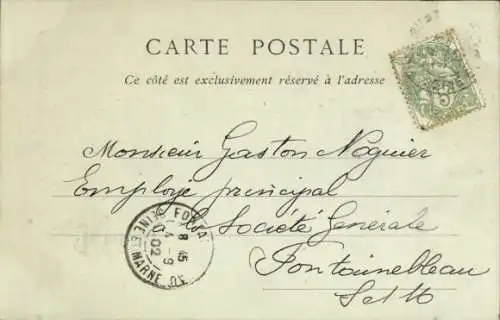 CARTE POSTALE
Ce côté est exclusivement réservé à l'adresse
5
Monsieur Gaston Noguier
Employé principal
la Société Générale
Fontainebleau
S et M
8 45
4 - 9
02
SEINE ET MARNE